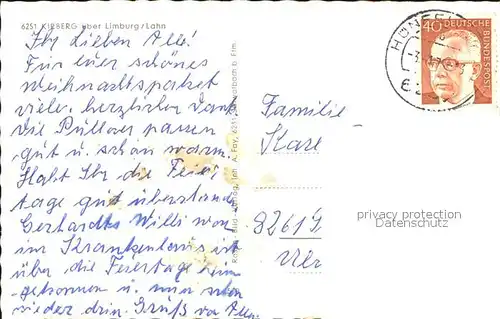 6251 KIRBERG über Limburg/Lahn
Ihr Lieben Alle!
Für euer schönes
Weihnachtspaket
vielen herzlichen Dank
die Pullover passen
gut u. schön warm.
Habt Ihr die Feier
tage gut überstanden
Gerhardts Willi war
im Krankenhaus ist
über die Feiertage heim
gekommen u. nun schon
wieder drin. Gruß von Allen
Familie
Karl
8261
DEUTSCHE
BUNDESPOST
40
HÜNFE
privacy protection
Datenschutz